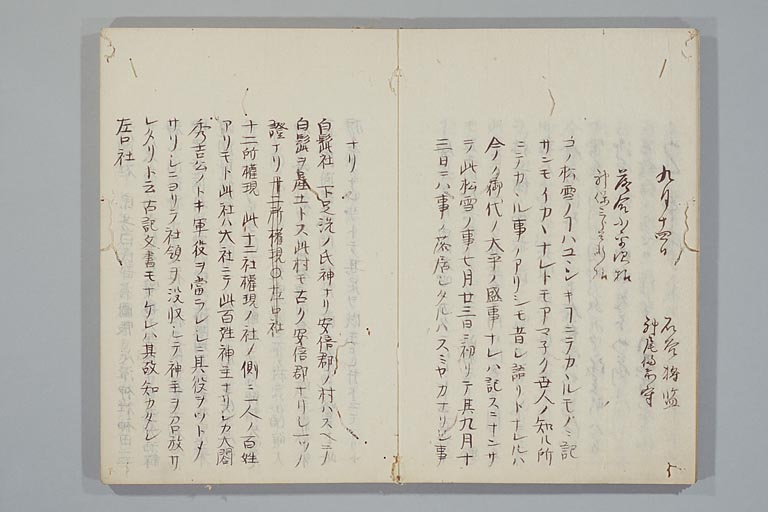 九月十四日
石谷将監
神尾備前守
コノ松雪ノヿハユヽシキヿニテカヽルモノヘ記
サンモイカヽナレトモアマネク世人ノ知ル所
ニテカヽル事ノアリシモ昔シ語リトナレルハ
今ノ御代ノ大平ノ盛事ナレハ記スニナンサ
テ此松雪ノ事ノ七月廿三日ニ初リテ其九月十
三日ニハ事ノ落居シタルハスミヤカナリシ事
ナリ
白髭社 下足洗ノ氏神ナリ安倍郡ノ村ハスヘテ
白髭ヲ産土トス此村モ古ク安倍郡ナリシ一ツノ
證ナリ 十二所権現〇左口社
十二所権現 此十二社権現ノ社ノ側ニ一人ノ百姓
アリモト此社ハ大社ニテ此百姓神主ナリシカ大閤
秀吉公ノトキ軍役ヲ當ラレシニ其役ヲツトメ
サリシニヨリテ社領ヲ没収シテ神主ヲ召放サ
レタリト云古記文書モナケレハ其故知カタシ
左口社